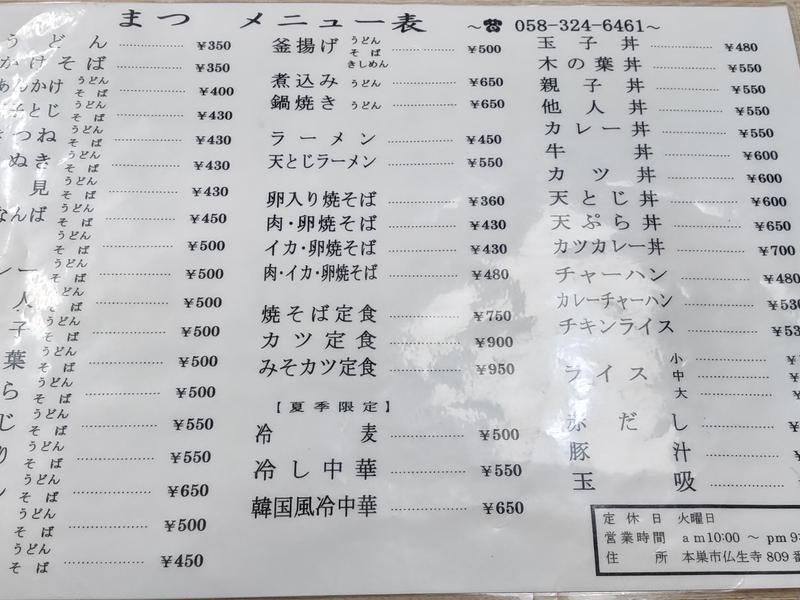 まつ メニュー表 〜☎ 058-324-6461〜
うどん ¥350
かけそば ¥350
あんかけ うどん そば ¥400
子とじ うどん そば ¥430
きつね うどん そば ¥430
ぬき うどん そば ¥430
見 うどん そば ¥430
なんば うどん そば ¥450
うどん そば ¥500
レー うどん そば ¥500
人 うどん そば ¥500
子 うどん そば ¥500
葉 うどん そば ¥500
ら うどん そば ¥500
じ うどん そば ¥550
り うどん そば ¥550
うどん そば ¥650
うどん そば ¥500
うどん そば ¥450
釜揚げ うどん そば きしめん ¥500
煮込み うどん ¥650
鍋焼き うどん ¥650
ラーメン ¥450
天とじラーメン ¥550
卵入り焼そば ¥360
肉・卵焼そば ¥430
イカ・卵焼そば ¥430
肉・イカ・卵焼そば ¥480
焼そば定食 ¥750
カツ定食 ¥900
みそカツ定食 ¥950
【夏季限定】
冷麦 ¥500
冷し中華 ¥550
韓国風冷中華 ¥650
玉子丼 ¥480
木の葉丼 ¥550
親子丼 ¥550
他人丼 ¥550
カレー丼 ¥550
牛丼 ¥600
カツ丼 ¥600
天とじ丼 ¥600
天ぷら丼 ¥650
カツカレー丼 ¥700
チャーハン ¥480
カレーチャーハン ¥530
チキンライス ¥53
ライス 小 ¥
中 ¥
大 ¥
赤だし ¥
豚汁 ¥
玉吸 ¥
定休日 火曜日
営業時間 am10:00 〜 pm9:
住所 本巣市仏生寺809番